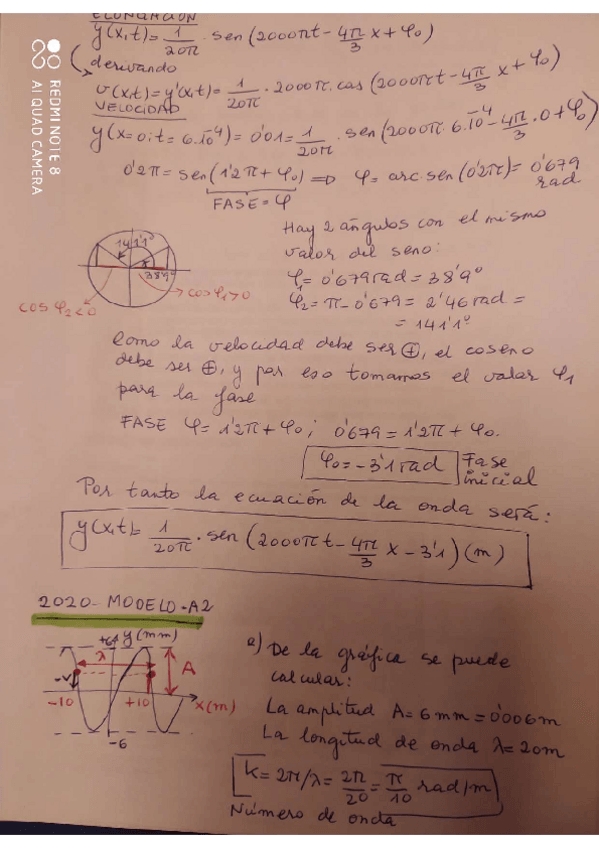 ELONGACIÓN
y(x,t)= 1/20π · sen (2000πt - 4π/3 x + φ₀)
derivando
v(x,t)= y'(x,t)= 1/20π · 2000π · cos (2000πt - 4π/3 x + φ₀)
VELOCIDAD
y(x=0; t= 6·10⁻⁴)= 0'01= 1/20π · sen (2000π·6·10⁻⁴ - 4π/3·0 + φ₀)
0'2π= sen (1'2π + φ₀) ⇒ φ= arc sen (0'2π)= 0'679 rad
FASE = φ
Hay 2 ángulos con el mismo
valor del seno:
φ₁= 0'679 rad = 38'9°
φ₂= π - 0'679 = 2'46 rad =
= 141'1°
141'1°
38'9°
cos φ₂<0
cos φ₁>0
Como la velocidad debe ser ⊕, el coseno
debe ser ⊕, y por eso tomamos el valor φ₁
para la fase
FASE φ= 1'2π + φ₀ ; 0'679 = 1'2π + φ₀.
φ₀= -3'1 rad Fase
inicial
Por tanto la ecuación de la onda será:
y(x,t)= 1/20π · sen (2000πt - 4π/3 x - 3'1) (m)
2020 - MODELO - A2
+6 y(mm)
λ
A
-10 +10 x(m)
-6
a) De la gráfica se puede
calcular:
La amplitud A= 6 mm = 0'006 m
La longitud de onda λ= 20m
k= 2π/λ= 2π/20 = π/10 rad/m
Número de onda
REDMI NOTE 8
AI QUAD CAMERA